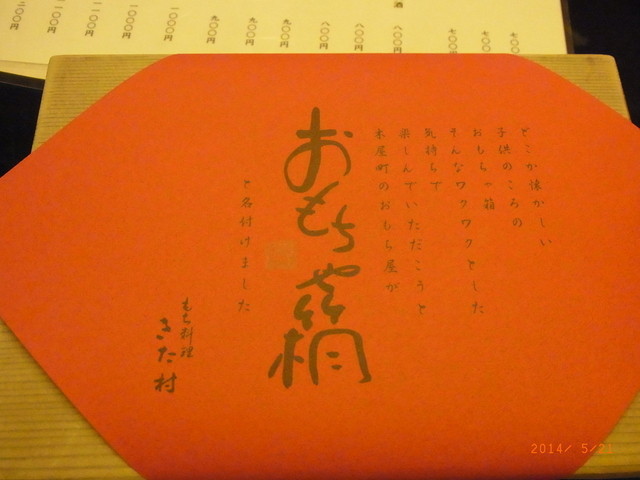 酒
七〇〇円
七〇〇円
七〇〇円
八〇〇円
八〇〇円
八〇〇円
九〇〇円
九〇〇円
九〇〇円
一〇〇〇円
一〇〇〇円
一一〇〇円
一一〇〇円
二〇〇円
どこか懐かしい
子供のころの
おもちゃ箱
そんなワクワクとした
気持ちで
楽しんでいただこうと
木屋町のおもち屋が
おもちゃ箱
と名付けました
もち料理
きた村
2014/ 5/21